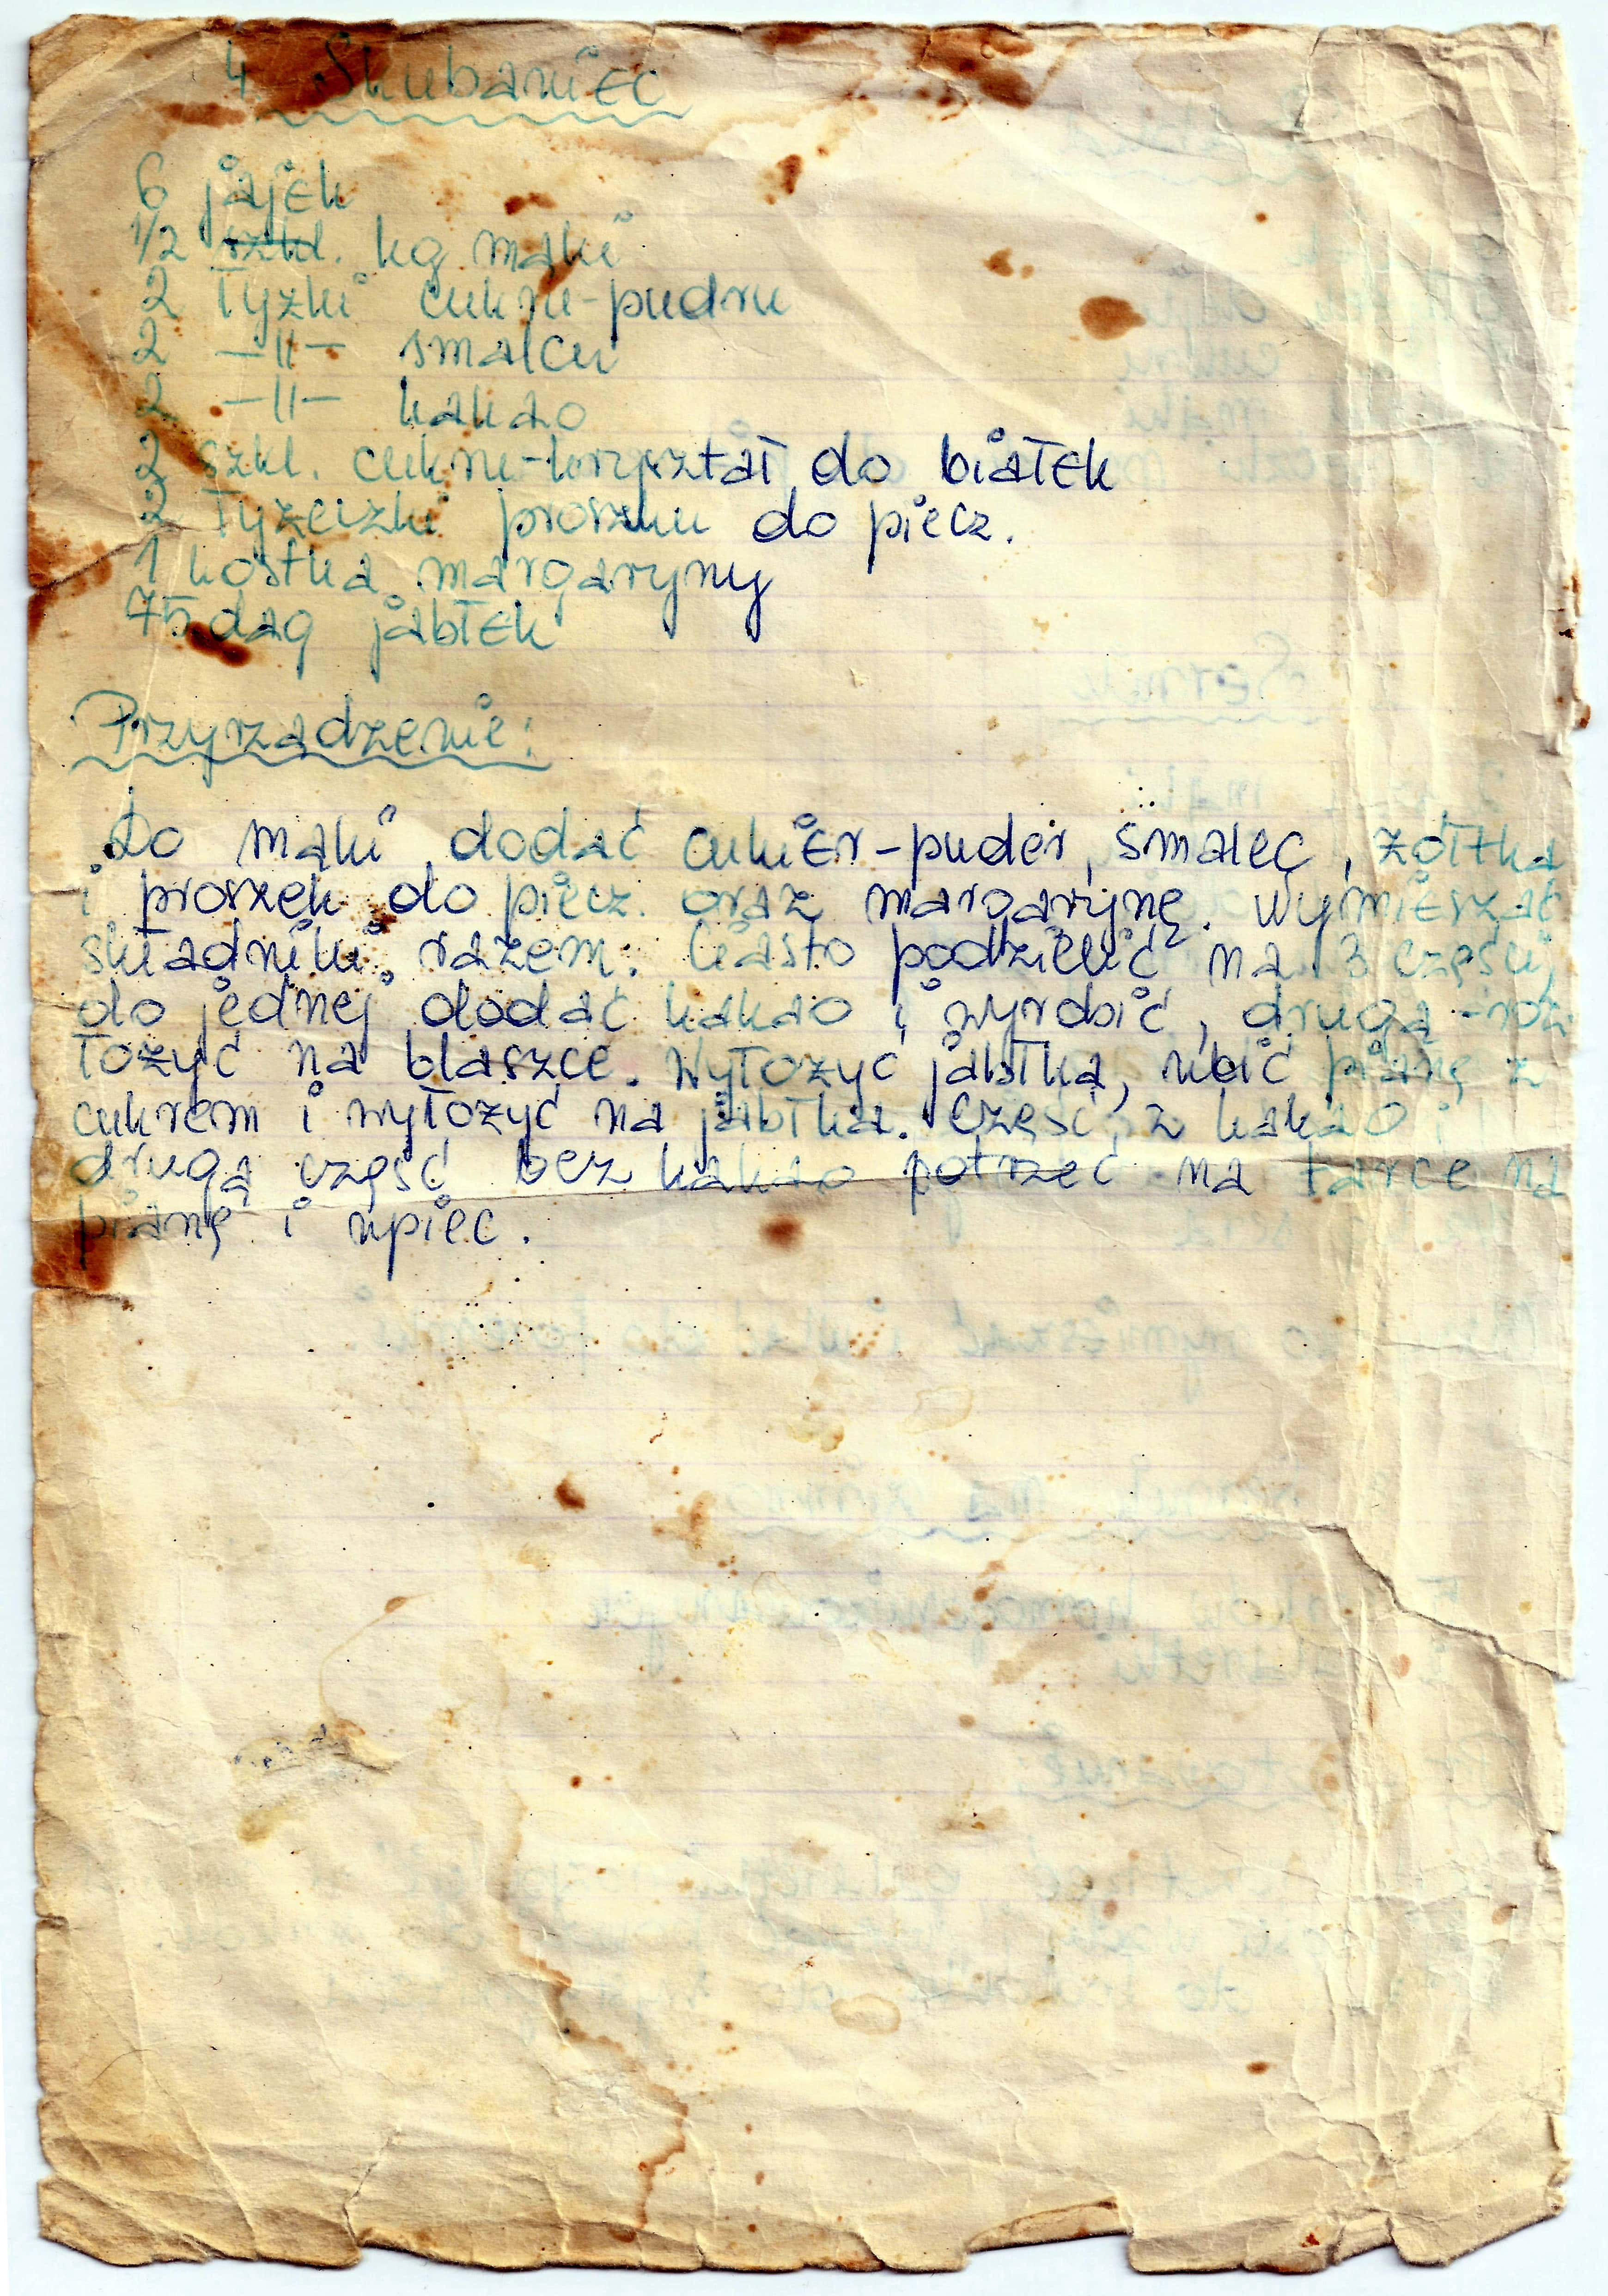 4 Skubaniec
6 jajek
1/2 szkl. kg mąki
2 łyżki cukru-pudru
2 —||— smalcu
2 —||— kakao
2 szkl. cukru-kryształ do białek
2 łyżeczki proszku do piecz.
1 kostka margaryny
75 dag jabłek
Przyrządzenie:
Do mąki dodać cukier-puder, smalec, żółtka
i proszek do piecz. oraz margarynę. Wymieszać
składniki razem. Ciasto podzielić na 3 części,
do jednej dodać kakao i wyrobić, drugą - roz
łożyć na blaszce. Wyłożyć jabłka, ubić pianę z
cukrem i wyłożyć na jabłka. Część z kakao i
drugą część bez kakao potrzeć na tarce na
pianę i upiec.